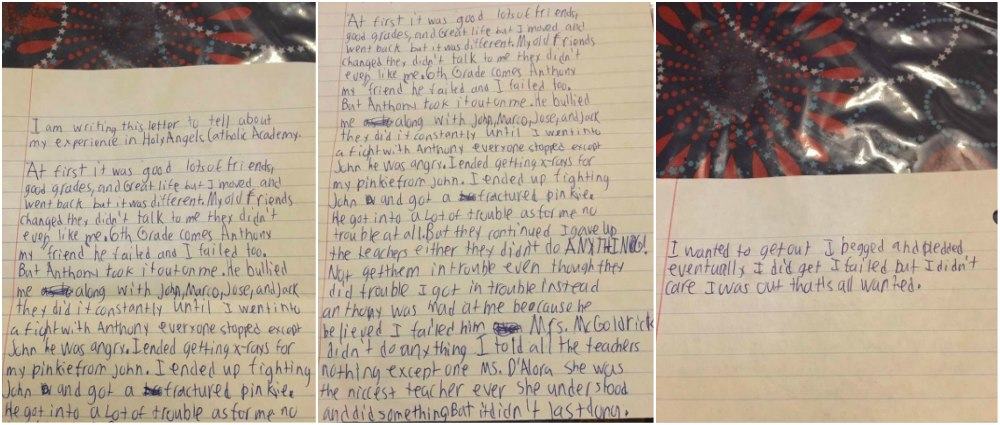 I am writing this letter to tell about
my experience in Holy Angels Catholic Academy.
At first it was good lots of friends,
good grades, and Great life but I moved and
went back but it was different. My old friends
changed they didn't talk to me they didn't
even like me. 6th Grade comes Anthony
my friend he failed and I failed too.
But Anthony took it out on me. He bullied
me along with John, Marco, Jose, and Jack
they did it constantly until I went into
a fight with Anthony everyone stopped except
John he was angry. I ended getting x-rays for
my pinkie from john. I ended up fighting
John and got a fractured pinkie.
He got into a Lot of trouble as for me no
At first it was good lots of friends,
good grades, and Great life but I moved and
went back but it was different. My old friends
changed they didn't talk to me they didn't
even like me. 6th Grade comes Anthony
my friend he failed and I failed too.
But Anthony took it out on me. He bullied
me along with John, Marco, Jose, and Jack
they did it constantly until I went into
a fight with Anthony everyone stopped except
John he was angry. I ended getting x-rays for
my pinkie from john. I ended up fighting
John and got a fractured pinkie.
He got into a Lot of trouble as for me no
trouble at all. But they continued I gave up
the teachers either they didn't do ANYTHING!
Not get them in trouble even though they
did trouble I got in trouble instead
anthony was mad at me beocause he
believed I failed him Mrs. McGoldrick
didn't do anything I told all the teachers
nothing except one Ms. D'Alora she was
the niccest teacher ever she understood
and did something But it didn't last long.
I wanted to get out I begged and pledded
eventually I did get I failed but I didn't
care I was out that's all wanted.